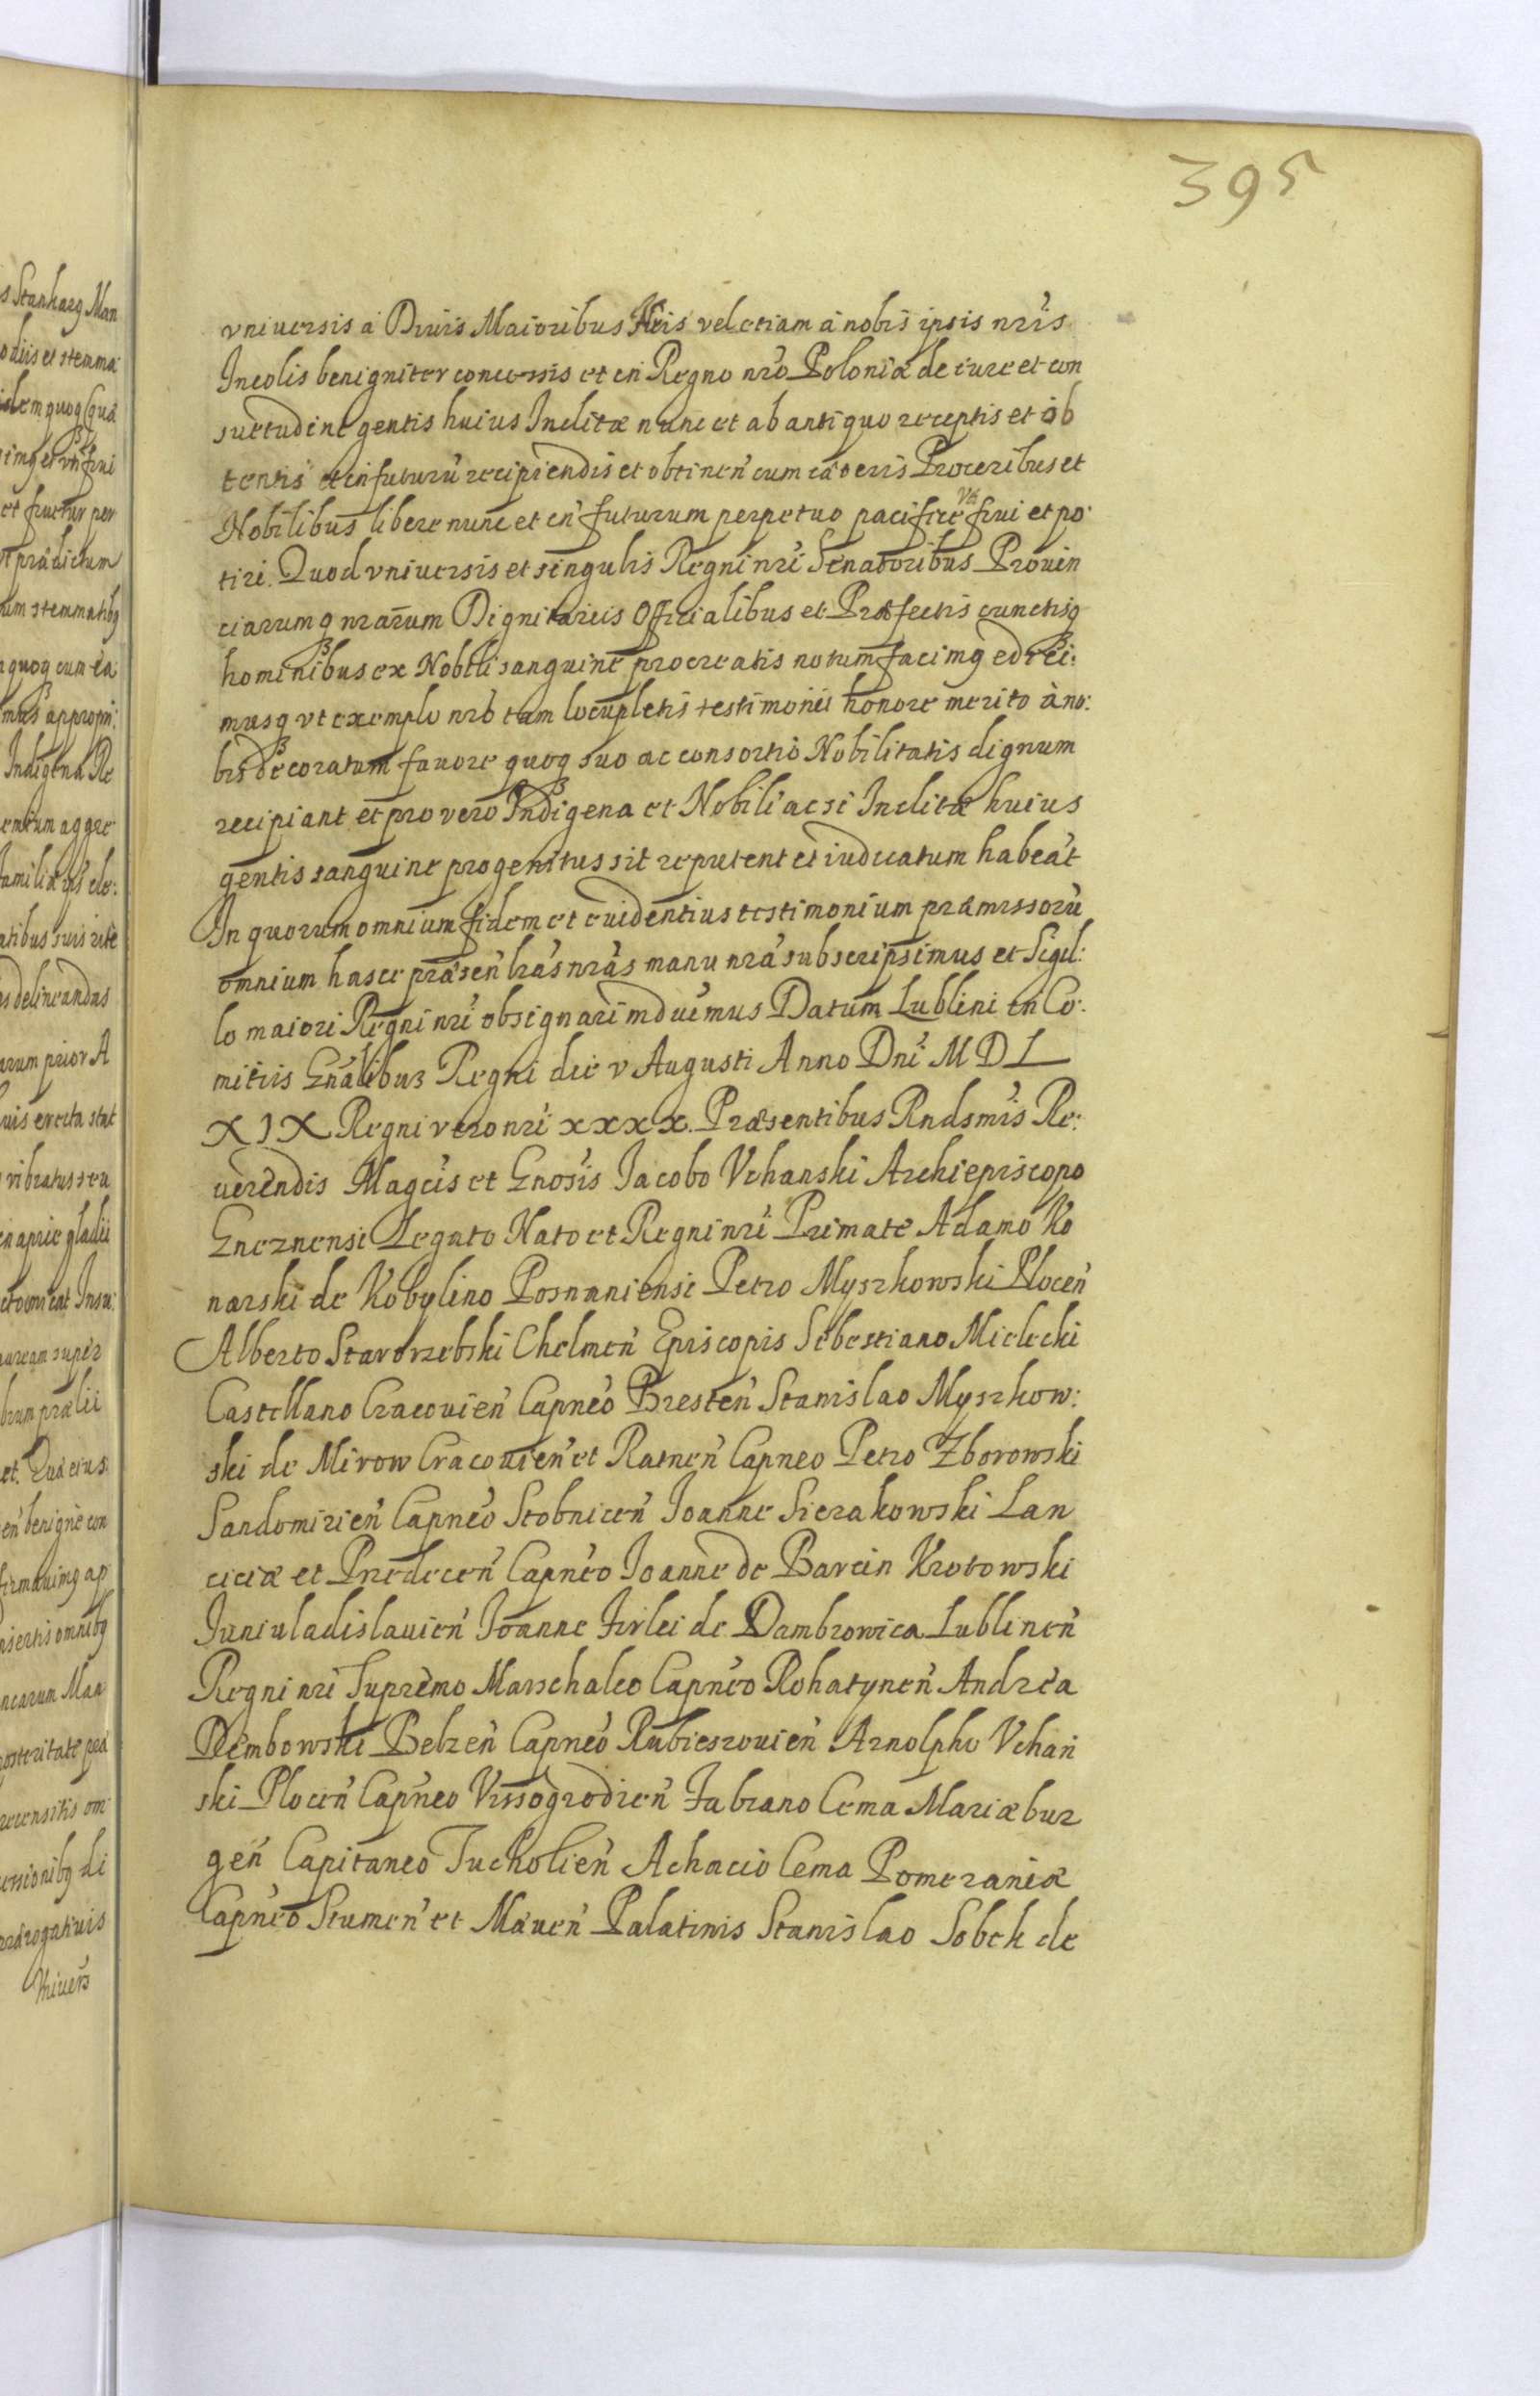 395
vniuersis a Diuis Maioribus Nris vel etiam a nobis ipsis nris
Incolis benigniter concessis et in Regno nro Poloniæ de iure et con
suetudine gentis huius Inclitæ nunc et ab antiquo receptis et ob
tentis et in futurū recipiendis et obtineń cum cæteris Proceribus et
Nobilibus libere nunc et in futurum perpetuo pacifice vti frui et po:
tiri. Quod vniuersis et singulis Regni nri Senatoribus Prouin
ciarumq nrarum Dignitariis Officialibus et Præfectis cunctisq
hominibus ex Nobili sanguine procreatis notum facimq edici:
musq vt exemplo nro tam locupletis testimonii honore merito à no:
bis decoratum fauore quoq suo ac consortio Nobilitatis dignum
recipiant et pro vero Indigena et Nobili ac si Inclitæ huius
gentis sanguine progenitus sit reputent et iudicatum habeāt
In quorum omnium fidem et euidentius testimonium præmissorū
omnium hasce præseń lras nras manu nra subscripsimus et Sigil:
lo maiori Regni nri obsignari mduimus Datum Lublini in Co:
mitiis Gnalibus Regni die v Augusti Anno Dni M D L
X I X Regni vero nri xxxx. Præsentibus Rndsmis Re:
uerendis Magcis et Gnosis Iacobo Vchanski Archiepiscopo
Gneznensi Legato Nato et Regni nri Primate Adamo Ko
narski de Kobylino Posnaniensi Petro Myszkowski Płoceń
Alberto Starorzebski Chelmeń Episcopis Sebestiano Mielecki
Castellano Cracouień Capneo Bresteń Stanislao Myszkow:
ski de Mirow Cracouień et Ratneń Capneo Petro Zborowski
Sandomirień Capneo Stobniceń Ioanne Sierakowski Lan
ciciæ et Predeceń Capneo Ioanne de Barcin Krotowski
Iuniuladislauień Ioanne Firlei de Dambrowica Lublineń
Regni nri Supremo Marschalco Capneo Rohatyneń Andrea
Dembowski Belzeń Capneo Rubieszouień Arnolpho Vchań
ski Ploceń Capneo Vissogrodień Fabiano Cema Mariæbur
geń Capitaneo Tucholień Achacio Cema Pomeraniæ
Capneo Stumeń et Mæueń Palatinis Stanislao Sobek de